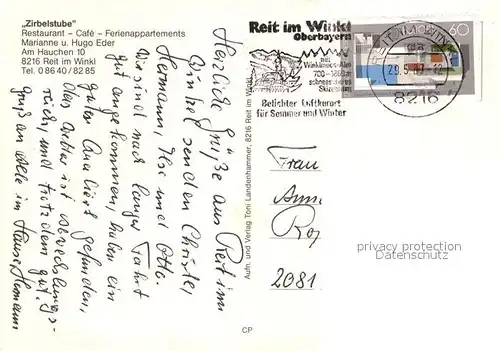 „Zirbelstube"
Restaurant – Café – Ferienappartements
Marianne u. Hugo Eder
Am Hauchen 10
8216 Reit im Winkl
Tel. 0 86 40 / 82 85
Herzliche Grüße aus Reit im
Winkel senden Christel,
Hermann, Ilse und Otto.
Wir sind nach langer Fahrt
gut angekommen, haben ein
gutes Quartier gefunden,
das Wetter ist abwechslungs-
reich, und trotzdem gut.
Gruß an alle im Hause Hermann
Aufn. und Verlag Toni Landenhammer, 8216 Reit im Winkl
CP
Reit im Winkl
Oberbayern
mit
Winklmoos-Alm
700-1860m
schneesicheres
Skizentrum
Beliebter Luftkurort
für Sommer und Winter
REIT IM WINKL
29.5.87-12
8216
60
Frau
2081
privacy protection
Datenschutz